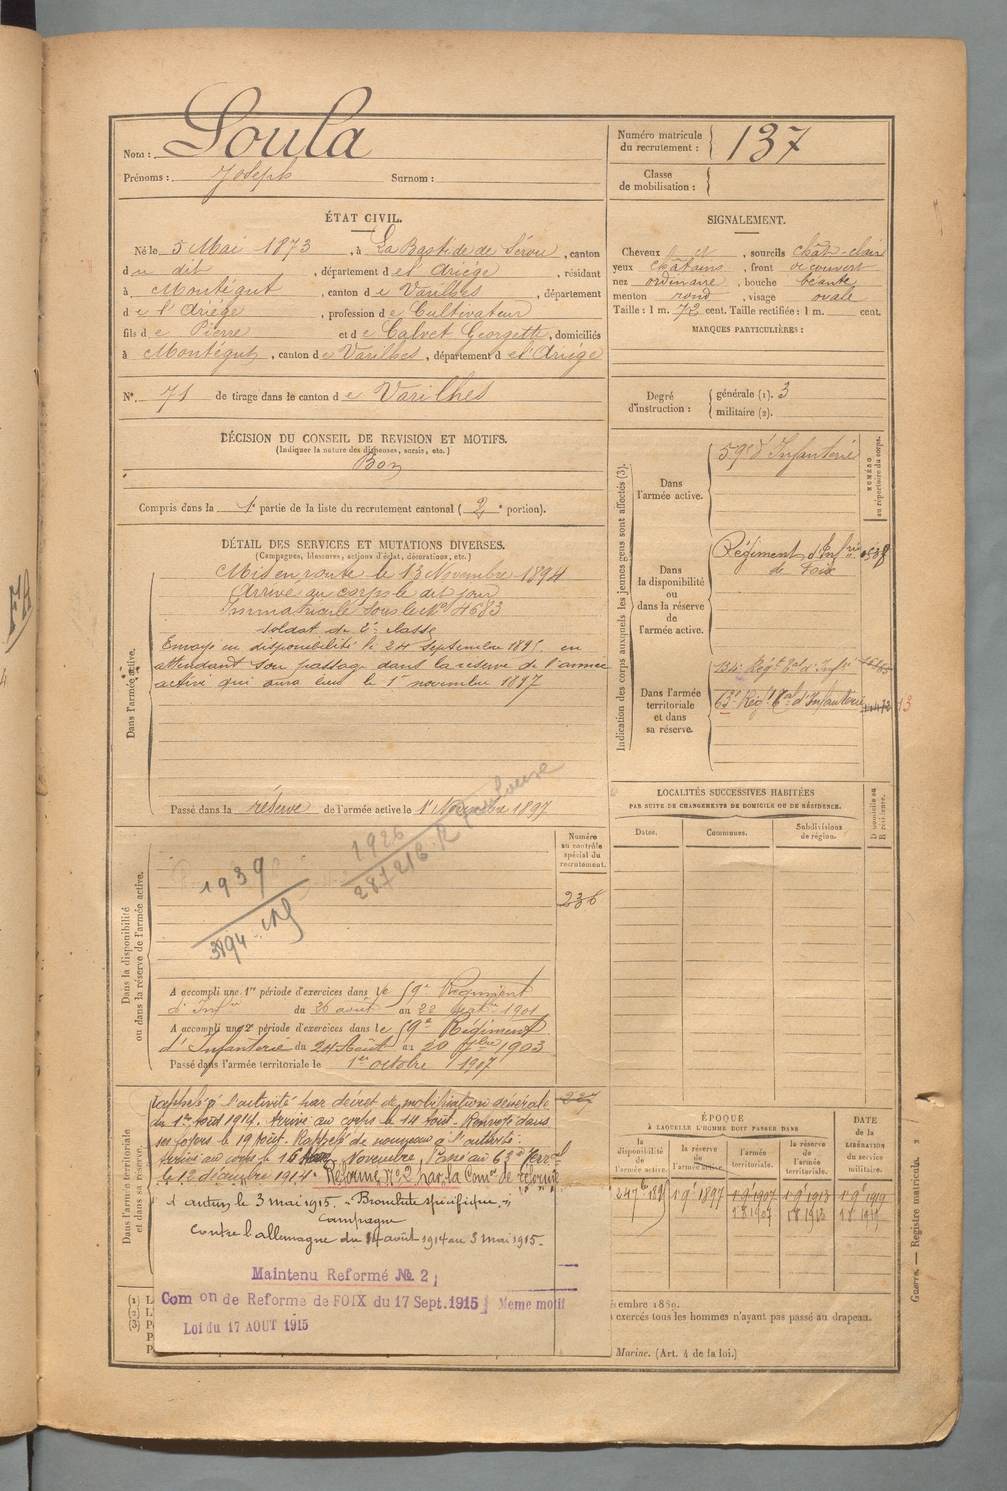 Nom : Soula
Prénoms : Joseph Surnom :
Numéro matricule du recrutement : 137
Classe de mobilisation :
ÉTAT CIVIL.
Né le 5 Mai 1873, à La Bastide de Sérou, canton
du dit, département de l'Ariège, résidant
à Montégut, canton de Varilhes, département
de l'Ariège, profession de Cultivateur
fils de Pierre et de Calvet Georgette, domiciliés
à Montégut, canton de Varilhes, département de l'Ariège
N° 71 de tirage dans le canton de Varilhes
SIGNALEMENT.
Cheveux, sourcils chât-clair
yeux châtains, front découvert
nez ordinaire, bouche béante
menton rond, visage ovale
Taille : 1 m. 72 cent. Taille rectifiée : 1 m. cent.
MARQUES PARTICULIÈRES :
Degré d'instruction : générale (1). 3
militaire (2).
DÉCISION DU CONSEIL DE REVISION ET MOTIFS.
(Indiquer la nature des dispenses, sursis, etc.)
Bon
Compris dans la 1e partie de la liste du recrutement cantonal (2e portion).
DÉTAIL DES SERVICES ET MUTATIONS DIVERSES.
(Campagnes, blessures, actions d'éclat, décorations, etc.)
Dans l'armée active.
Mis en route le 13 Novembre 1894
Arrivé au corps le dit jour
Immatriculé sous le No 4683
soldat de 2e classe
Envoyé en disponibilité le 24 septembre 1895 en
attendant son passage dans la réserve de l'armée
active qui aura lieu le 1er novembre 1897
Passé dans la réserve de l'armée active le 1er Novembre 1897
Indication des corps auxquels les jeunes gens sont affectés (3).
NUMÉRO au répertoire du corps.
Dans l'armée active.
59e d'Infanterie
Dans la disponibilité ou dans la réserve de l'armée active.
Régiment d'Infrie
de Foix
Dans l'armée territoriale et dans sa réserve.
134e Régt tal d'Infie
63e Régt tal d'Infanterie
13
LOCALITÉS SUCCESSIVES HABITÉES
PAR SUITE DE CHANGEMENTS DE DOMICILE OU DE RÉSIDENCE.
Dates. Communes. Subdivisions de région. D domicile ou R résidence.
Dans la disponibilité ou dans la réserve de l'armée active.
Numéro au contrôle spécial du recrutement.
236
1939
3894
1926
2872/2 R Toulouse
A accompli une 1re période d'exercices dans le 59e Régiment
d'Infie du 26 août au 22 septbre 1901
A accompli une 2e période d'exercices dans le 59e Régiment
d'Infanterie du 24 Août au 20 7bre 1903
Passé dans l'armée territoriale le 1er octobre 1907
Dans l'armée territoriale et dans sa réserve.
Rappelé à l'activité par décret de mobilisation générale
du 1er Août 1914. Arrivé au corps le 14 août. Renvoyé dans
ses foyers le 19 Août. Rappelé de nouveau à l'activité.
Arrivé au corps le 16 Novembre. Passé au 63e Terral
le 12 décembre 1914. Réformé No 2 par la Comon de réforme
d'Autun le 3 mai 1915. "Bronchite spécifique."
Campagne
Contre l'allemagne du 14 août 1914 au 3 mai 1915.
Maintenu Reformé No 2,
Com on de Reforme de FOIX du 17 Sept. 1915 Meme motif
Loi du 17 AOUT 1915
ÉPOQUE
À LAQUELLE L'HOMME DOIT PASSER DANS
la disponibilité de l'armée active. la réserve de l'armée active. l'armée territoriale. la réserve de l'armée territoriale.
DATE de la LIBÉRATION DU service militaire.
24 7bre 1895 1 9e 1897 1 9e 1907 1 9e 1913 1 9e 1919
1 8 1907 1 8 1913 1 8 1919
exercés tous les hommes n'ayant pas passé au drapeau.
Marine. (Art. 4 de la loi.)
Guerre. — Registre matricule. 2